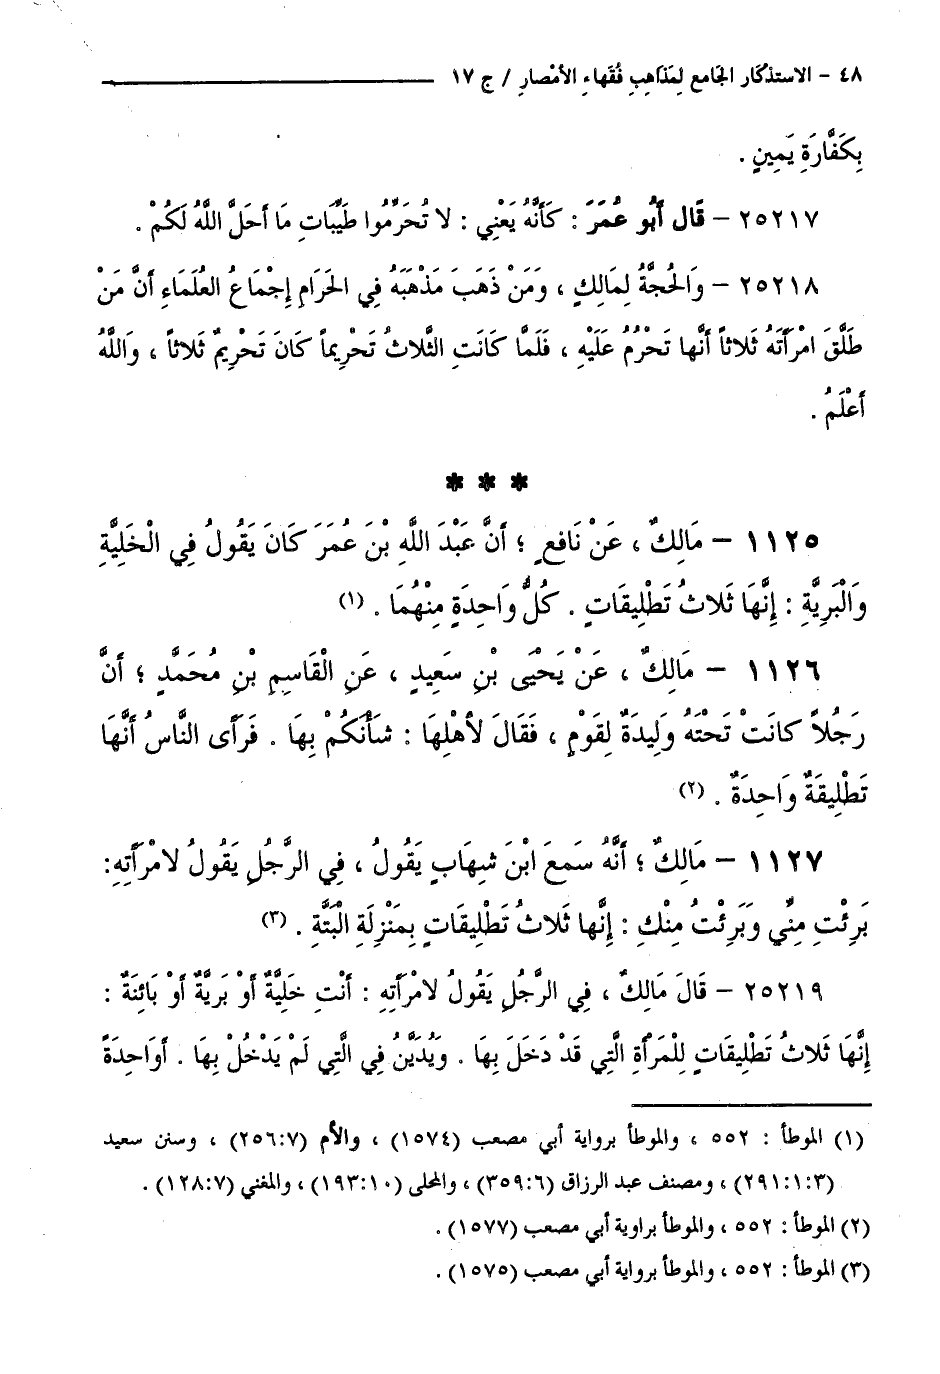 ٤٨ – الاستذكار الجامع لمذاهب فقهاء الأمصار / ج ١٧
بِكَفَّارَةِ يَمِينٍ .
٢٥٢١٧ – قَالَ أَبُو عُمَرَ : كَأَنَّهُ يَعْنِي : لا تُحَرِّمُوا طَيِّبَاتِ مَا أَحَلَّ اللَّهُ لَكُمْ .
٢٥٢١٨ – وَالحُجَّةُ لِمَالِكٍ ، وَمَنْ ذَهَبَ مَذْهَبَهُ فِي الحَرَامِ إِجْمَاعُ العُلَمَاءِ أَنَّ مَنْ
طَلَّقَ امْرَأَتَهُ ثَلاثاً أَنَّها تَحْرُمُ عَلَيْهِ ، فَلَمَّا كَانَتِ الثَّلاثُ تَحْرِيماً كانَ تَحْرِيمٌ ثَلاثاً ، وَاللَّهُ
أَعْلَمُ .
* * *
١١٢٥ – مَالِكٌ ، عَنْ نَافعٍ ؛ أَنَّ عَبْدَ اللَّهِ بْنَ عُمَرَ كَانَ يَقُولُ فِي الْخَلِيَّةِ
وَالْبَرِيَّةِ : إِنَّهَا ثَلاثُ تَطْلِيقَاتٍ . كُلُّ وَاحِدَةٍ مِنْهُمَا . (١)
١١٢٦ – مَالِكٌ ، عَنْ يَحْيَى بْنِ سَعِيدٍ ، عَنِ الْقَاسِمِ بْنِ مُحَمَّدٍ ؛ أَنَّ
رَجُلاً كانَتْ تَحْتَهُ وَلِيدَةٌ لِقَوْمٍ ، فَقَالَ لأَهْلِهَا : شَأْنَكُمْ بِهَا . فَرَأَى النَّاسُ أَنَّهَا
تَطْلِيقَةٌ وَاحِدَةٌ . (٢)
١١٢٧ – مَالِكٌ ؛ أَنَّهُ سَمعَ ابْنَ شِهَابٍ يَقُولُ ، فِي الرَّجُلِ يَقُولُ لامْرَأَتِهِ:
بَرِئْتِ مِنِّي وَبَرِئْتُ مِنْكِ : إِنَّها ثَلاثُ تَطْلِيقَاتٍ بِمَنْزِلَةِ الْبَتَّةِ . (٣)
٢٥٢١٩ – قَالَ مَالِكٌ ، فِي الرَّجُلِ يَقُولُ لامْرَأَتِهِ : أَنْتِ خَلِيَّةٌ أَوْ بَرِيَّةٌ أَوْ بَائِنَةٌ :
إِنَّهَا ثَلاثُ تَطْلِيقَاتٍ لِلْمَرْأَةِ الَّتِي قَدْ دَخَلَ بِهَا . وَيُدَيَّنُ فِي الَّتِي لَمْ يَدْخُلْ بِهَا . أَوَاحِدَةً
(١) الموطأ : ٥٥٢ ، والموطأ برواية أبي مصعب (١٥٧٤) ، والأم (٢٥٦:٧) ، وسنن سعيد
(٢٩١:١:٣) ، ومصنف عبد الرزاق (٣٥٩:٦) ، والمحلى (١٩٣:١٠) ، والمغني (١٢٨:٧) .
(٢) الموطأ : ٥٥٢ ، والموطأ براوية أبي مصعب (١٥٧٧) .
(٣) الموطأ : ٥٥٢ ، والموطأ برواية أبي مصعب (١٥٧٥) .